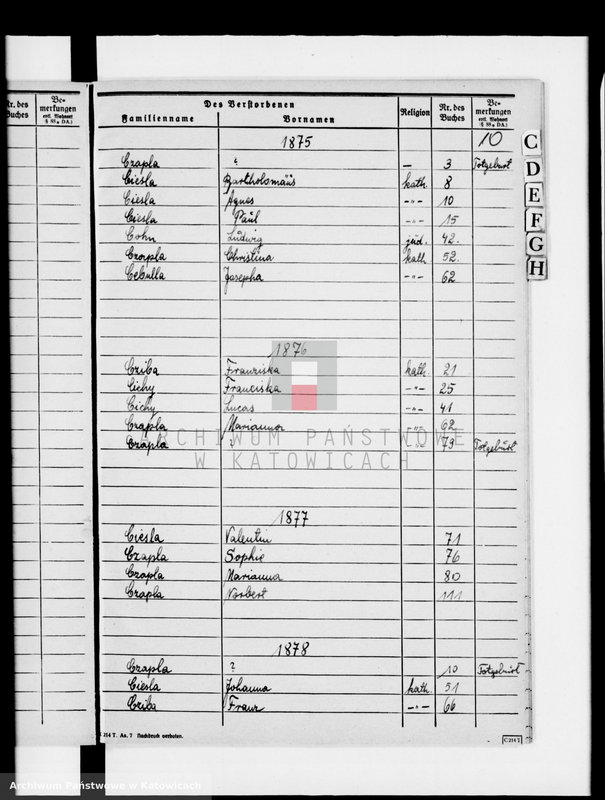 Nr. des Buches
Be-merkungen
entl. Wohnort
§ 88a DA.)
Des Verstorbenen
Familienname Vornamen Religion Nr. des Buches Be-merkungen
entl. Wohnort
§ 88a DA.)
1875 10
Czapla ? — 3 Totgeburt
Ciesla Bartholomäus kath. 8
Ciesla Agnes -"- 10
Ciesla Paul -"- 15
Cohn Ludwig jüd. 42.
Czapla Christina kath. 52.
Cebulla Josepha -"- 62
1876
Cziba Franziska kath. 21
Cichy Franciska -"- 25
Cichy Lucas -"- 41
Czapla Marianna -"- 62
Czapla ? -"- 79 Totgeburt
ARCHIWUM PAŃSTWOWE
W KATOWICACH
1877
Ciesla Valentin 71
Czapla Sophie 76
Czapla Marianna 80
Czapla Norbert 111
1878
Czapla ? 10 Totgeburt
Ciesla Johanna kath. 51
Cziba Franz -"- 66
C 214 T. Aa. 7 Nachdruck verboten.
C 214 T
C
D
E
F
G
H
Archiwum Państwowe w Katowicach